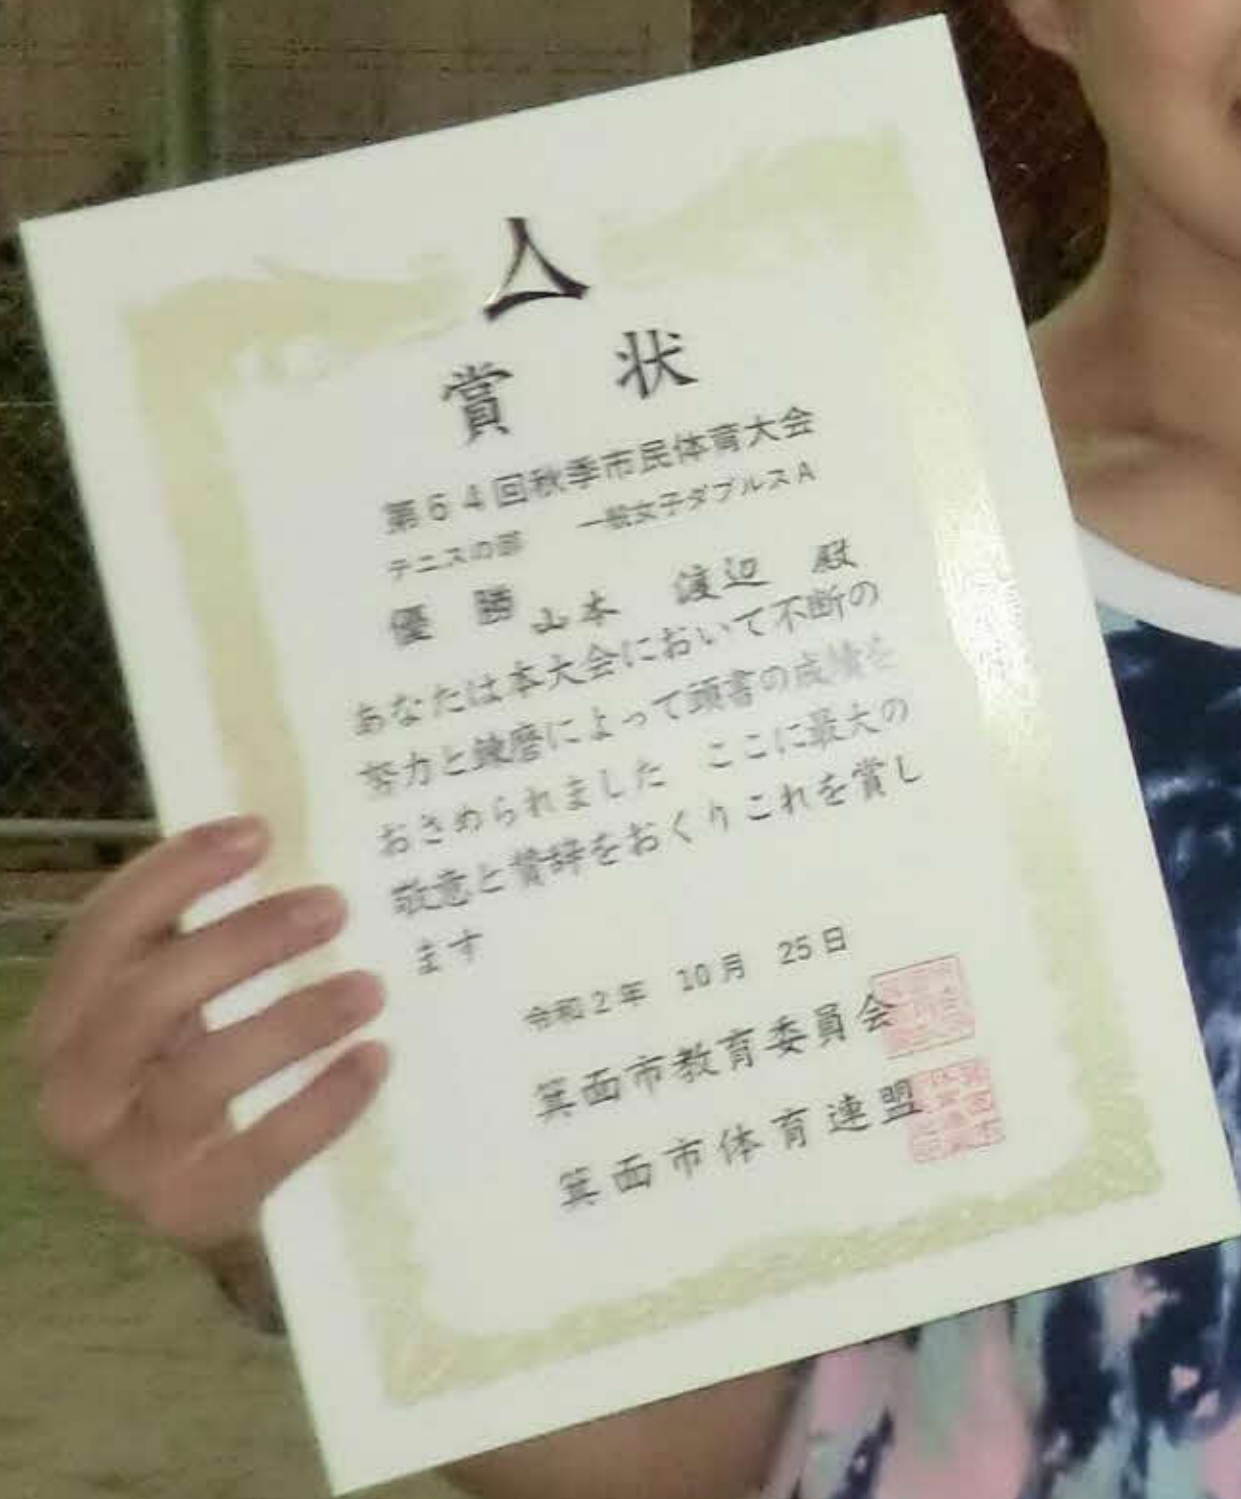 賞状
第54回秋季市民体育大会
テニスの部 一般女子ダブルスA
優勝 山本 渡辺 殿
あなたは本大会において不断の
努力と錬磨によって頭書の成績を
おさめられました ここに最大の
敬意と賛辞をおくりこれを賞し
ます
令和2年 10月 25日
箕面市教育委員会
箕面市体育連盟